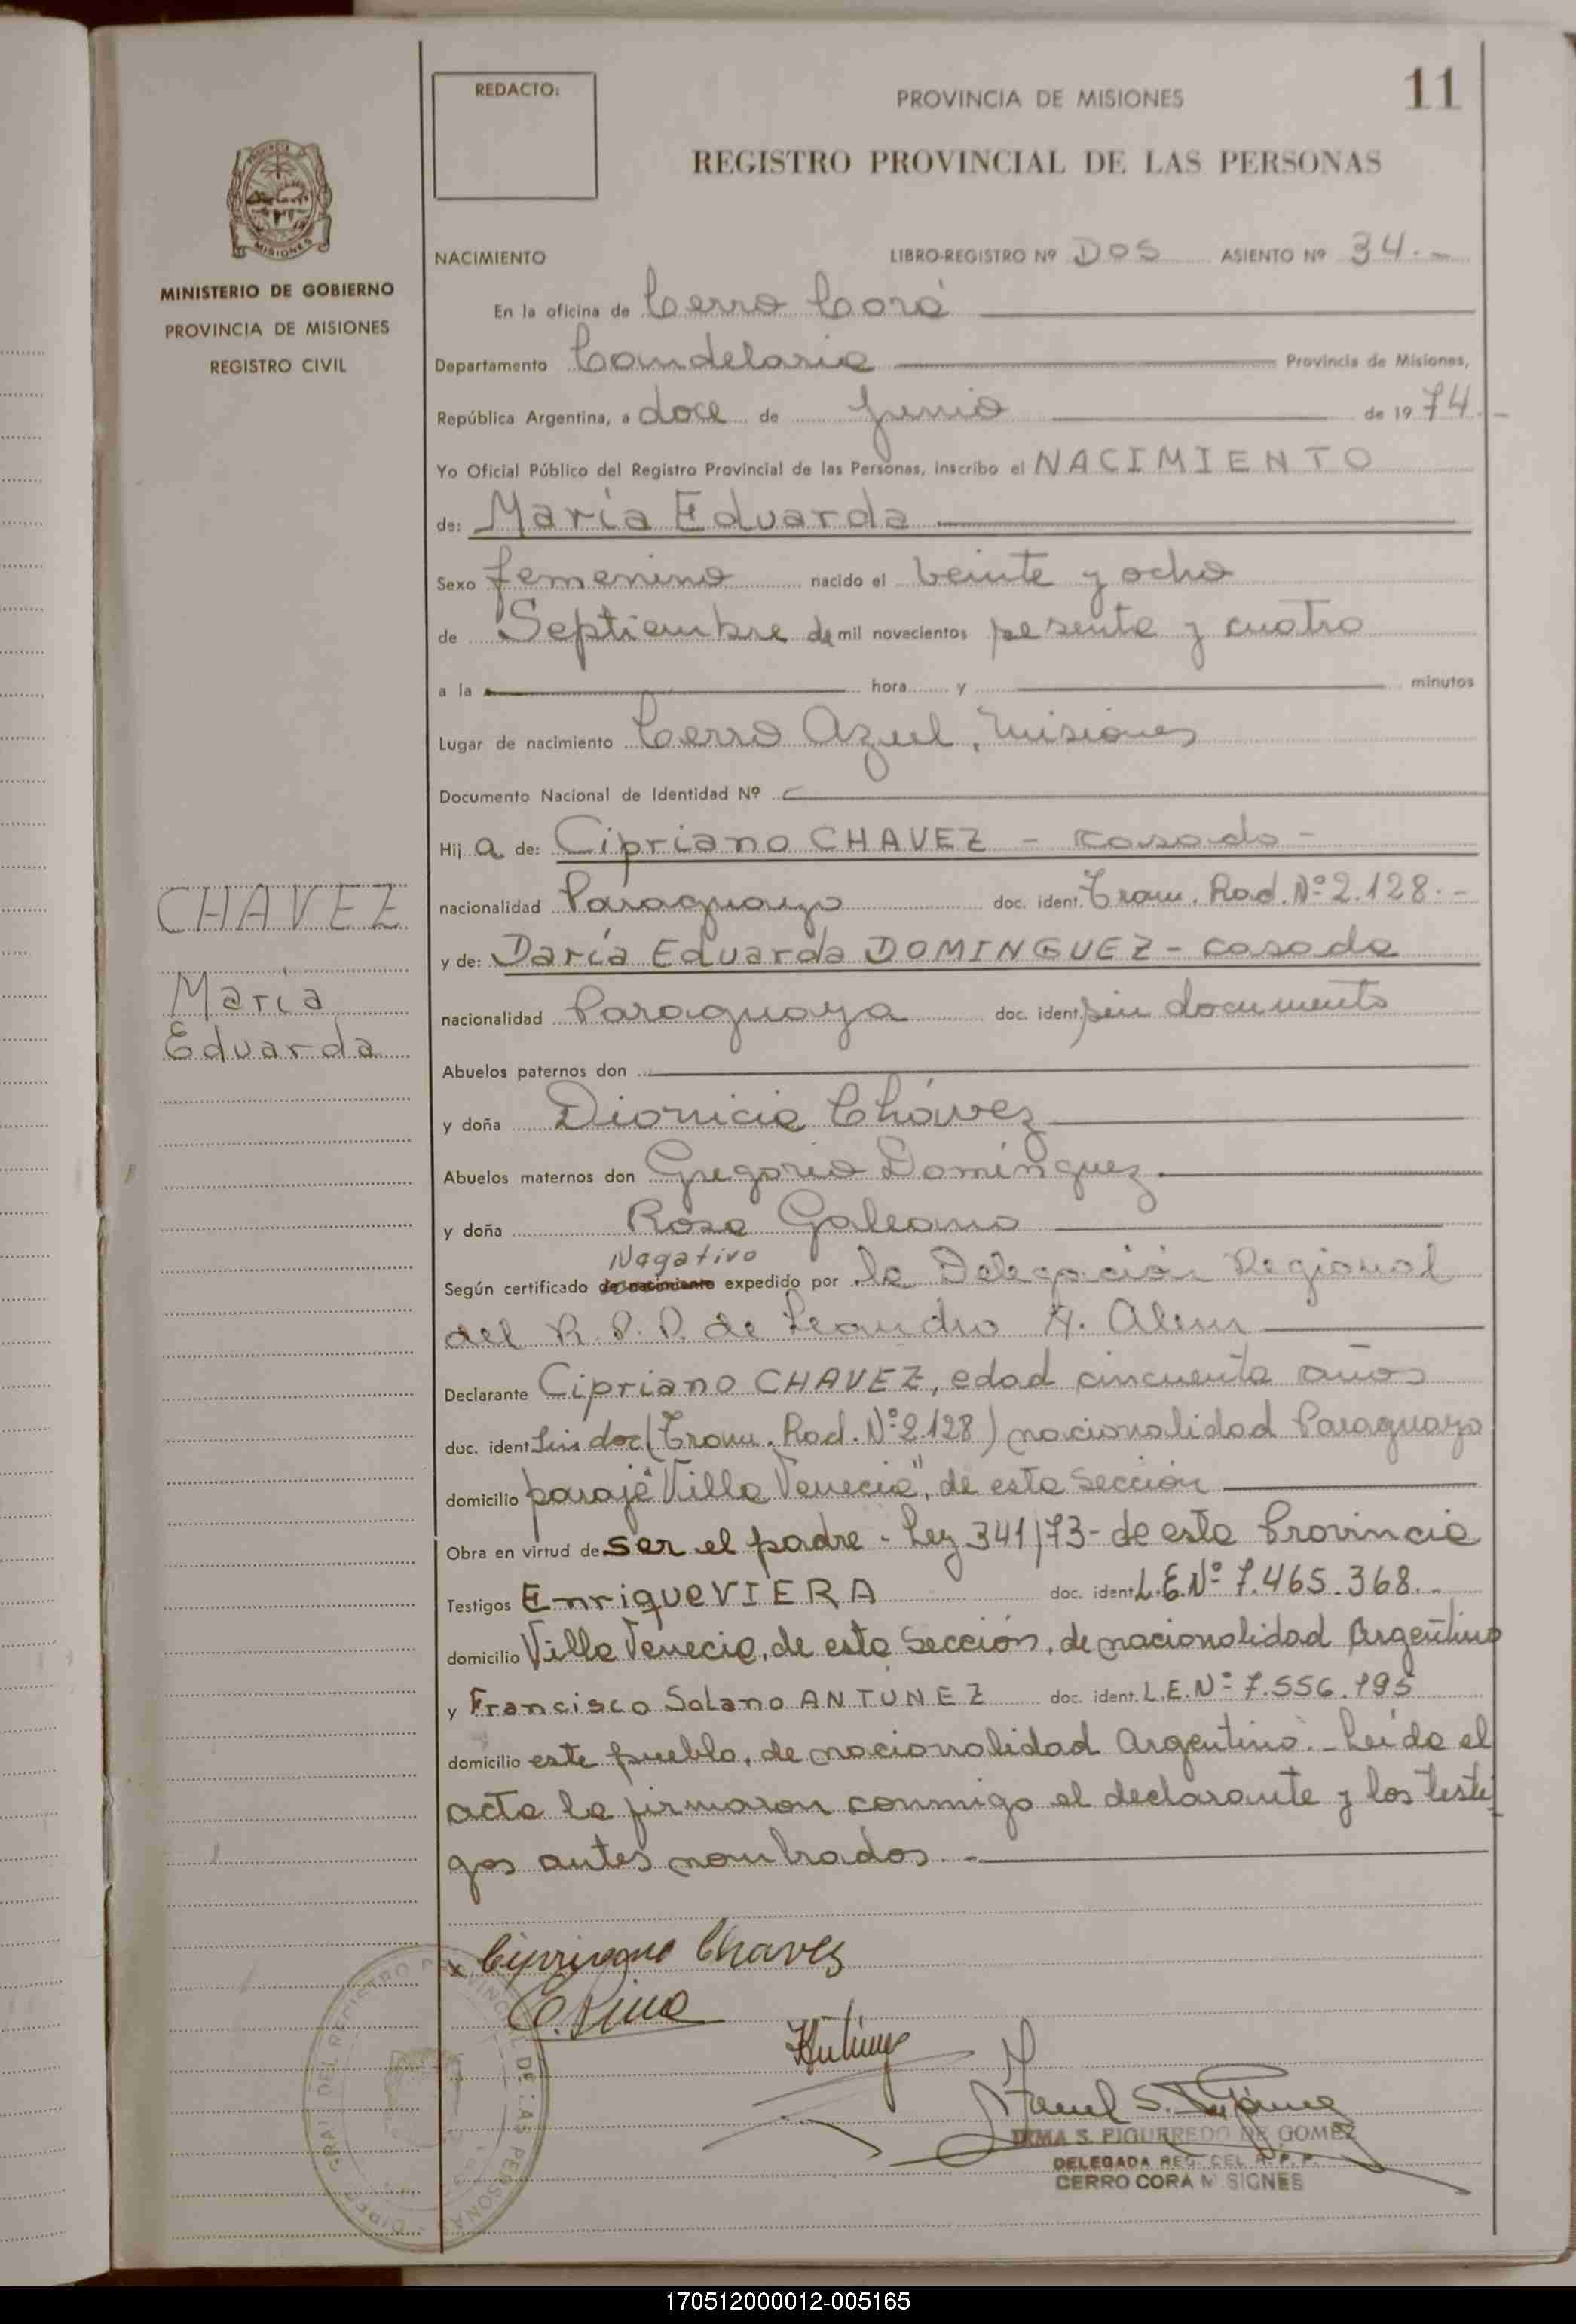 REDACTO:
PROVINCIA DE MISIONES
11
REGISTRO PROVINCIAL DE LAS PERSONAS
PROVINCIA
MISIONES
MINISTERIO DE GOBIERNO
PROVINCIA DE MISIONES
REGISTRO CIVIL
NACIMIENTO LIBRO-REGISTRO Nº DOS ASIENTO Nº 34.-
En la oficina de Cerro Corá
Departamento Candelaria Provincia de Misiones,
República Argentina, a doce de Junio de 1974.-
Yo Oficial Público del Registro Provincial de las Personas, inscribo el NACIMIENTO
de: María Eduarda
Sexo femenino nacido el veinte y ocho
de Septiembre de mil novecientos sesenta y cuatro
a la hora y minutos
Lugar de nacimiento Cerro Azul, Misiones
Documento Nacional de Identidad Nº
Hij a de: Cipriano CHAVEZ - casado -
nacionalidad Paraguayo doc. ident. Tram. Rad. Nº 2.128.-
y de: Daría Eduarda DOMINGUEZ - casada
nacionalidad Paraguaya doc. ident. sin documento
CHAVEZ
María
Eduarda
Abuelos paternos don
y doña Dionicia Chávez
Abuelos maternos don Gregorio Domínguez
y doña Rosa Galeano
Negativo
Según certificado de nacimiento expedido por la Delegación Regional
del R. P. P. de Leandro N. Alem
Declarante Cipriano CHAVEZ, edad cincuenta años
doc. ident. Sin doc (Tram. Rad. Nº 2.128) nacionalidad Paraguayo
domicilio paraje "Villa Venecia", de esta Sección
Obra en virtud de ser el padre - Ley 341/73 - de esta Provincia
Testigos Enrique VIERA doc. ident. L.E. Nº 7.465.368.-
domicilio Villa Venecia, de esta Sección, de nacionalidad Argentino
y Francisco Solano ANTUNEZ doc. ident. L.E. Nº 7.556.195
domicilio este pueblo, de nacionalidad Argentino.- Leída el
acta la firmaron conmigo el declarante y los testi
gos antes nombrados.-
x Cipriano Chavez
IRMA S. FIGUEREDO DE GOMEZ
DELEGADA REG. DEL R.P.P.
CERRO CORA MISIONES
170512000012-005165